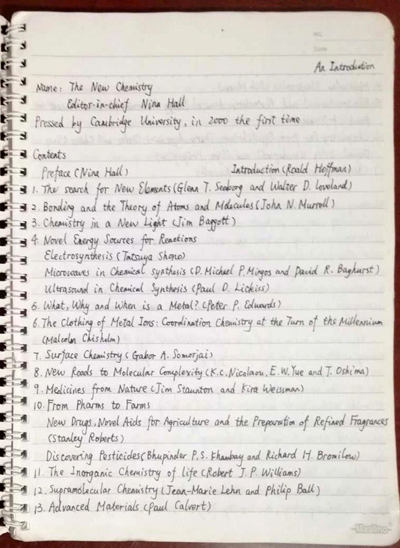 An Introduction
Name: The New Chemistry
Editor-in-chief Nina Hall
Pressed by Cambridge University, in 2000 the first time
Contents
Preface (Nina Hall) Introduction (Roald Hoffman)
1. The search for New Elements (Glenn T. Seaborg and Walter D. Loveland)
2. Bonding and the Theory of Atoms and Molecules (John N. Murrell)
3. Chemistry in a New Light (Jim Baggott)
4. Novel Energy Sources for Reactions
Electrosynthesis (Tatsuya Shono)
Microwaves in Chemical Synthesis (D. Michael P. Mingos and David R. Baghurst)
Ultrasound in Chemical Synthesis (Paul D. Lickiss)
5. What, Why and When is a Metal? (Peter P. Edwards)
6. The Clothing of Metal Ions: Coordination Chemistry at the Turn of the Millennium
(Malcolm Chisholm)
7. Surface Chemistry (Gabor A. Somorjai)
8. New Roads to Molecular Complexity (K.C. Nicolaou, E.W. Yue and T. Oshima)
9. Medicines from Nature (Jim Staunton and Kira Weissman)
10. From Pharms to Farms
New Drugs, Novel Aids for Agriculture and the Preparation of Refined Fragrances
(Stanley Roberts)
Discovering Pesticides (Bhupinder P.S. Khambay and Richard H. Bromilow)
11. The Inorganic Chemistry of life (Robert J. P. Williams)
12. Supramolecular Chemistry (Jean-Marie Lehn and Philip Ball)
13. Advanced Materials (Paul Calvert)